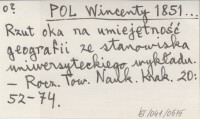 o?
POL Wincenty 1851...
Rzut oka na umiejętność
geografii ze stanowiska
uniwersyteckiego wykładu.
— Rocz. Tow. Nauk. Krak. 20:
52-74.